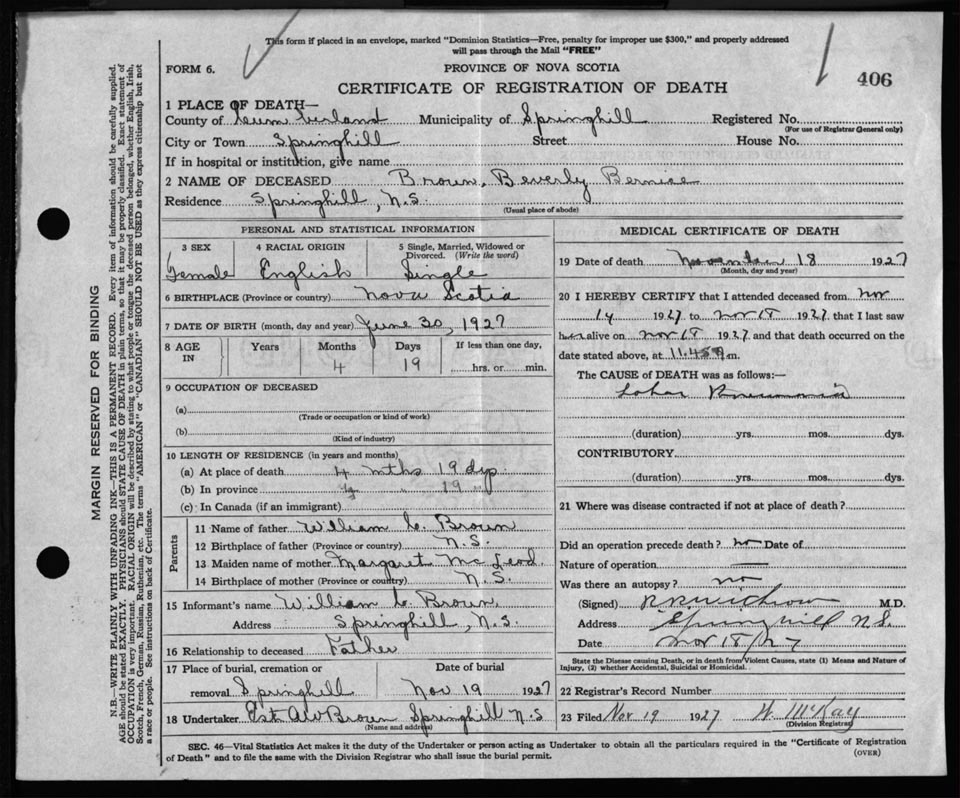 This form if placed in an envelope, marked "Dominion Statistics—Free, penalty for improper use $300," and properly addressed
will pass through the Mail "FREE"
FORM 6.
PROVINCE OF NOVA SCOTIA
406
CERTIFICATE OF REGISTRATION OF DEATH
1 PLACE OF DEATH—
County of Cumberland Municipality of Springhill Registered No.
(For use of Registrar General only)
City or Town Springhill Street House No.
If in hospital or institution, give name
2 NAME OF DECEASED Brown, Beverly Bernice
Residence Springhill, N.S.
(Usual place of abode)
PERSONAL AND STATISTICAL INFORMATION
3 SEX 4 RACIAL ORIGIN 5 Single, Married, Widowed or
Divorced. (Write the word)
Female English Single
6 BIRTHPLACE (Province or country) Nova Scotia
7 DATE OF BIRTH (month, day and year) June 30, 1927
8 AGE IN Years Months Days If less than one day,
4 19 hrs. or min.
9 OCCUPATION OF DECEASED
(a)
(Trade or occupation or kind of work)
(b)
(Kind of industry)
10 LENGTH OF RESIDENCE (in years and months)
(a) At place of death 4 mths 19 dys.
(b) In province 4 " 19 "
(c) In Canada (if an immigrant)
Parents
11 Name of father William C. Brown
12 Birthplace of father (Province or country) N.S.
13 Maiden name of mother Margaret McLeod.
14 Birthplace of mother (Province or country) N.S.
15 Informant's name William C. Brown,
Address Springhill, N.S.
16 Relationship to deceased Father
17 Place of burial, cremation or Date of burial
removal Springhill Nov 19 1927
18 Undertaker Est. A W Brown Springhill N.S
(Name and address)
MEDICAL CERTIFICATE OF DEATH
19 Date of death November 18 1927
(Month, day and year)
20 I HEREBY CERTIFY that I attended deceased from Nov
14 1927 to Nov 18 1927 that I last saw
her alive on Nov 18 1927 and that death occurred on the
date stated above, at 11.45 m.
The CAUSE OF DEATH was as follows:—
Lobar Pneumonia
(duration) yrs. mos. dys.
CONTRIBUTORY
(duration) yrs. mos. dys.
21 Where was disease contracted if not at place of death?
Did an operation precede death? no Date of
Nature of operation —
Was there an autopsy? no
(Signed) M.D.
Address Springhill N.S.
Date Nov 18/27
State the Disease causing Death, or in death from Violent Causes, state (1) Means and Nature of
Injury, (2) whether Accidental, Suicidal or Homicidal.
22 Registrar's Record Number
23 Filed Nov 19 1927 W. McKay
(Division Registrar)
SEC. 46—Vital Statistics Act makes it the duty of the Undertaker or person acting as Undertaker to obtain all the particulars required in the "Certificate of Registration
of Death" and to file the same with the Division Registrar who shall issue the burial permit.
(OVER)
MARGIN RESERVED FOR BINDING
N.B.—WRITE PLAINLY WITH UNFADING INK—THIS IS A PERMANENT RECORD. Every item of information should be carefully supplied.
AGE should be stated EXACTLY. PHYSICIANS should STATE CAUSE OF DEATH in plain terms, so that it may be properly classified. Exact statement of
OCCUPATION is very important. RACIAL ORIGIN will be described by stating to what people or tongue the deceased person belonged, whether English, Irish,
Scotch, French, German, Russian, Ruthenian, etc. The terms "AMERICAN" or "CANADIAN" SHOULD NOT BE USED as they express citizenship but not
a race or people. See instructions on back of Certificate.